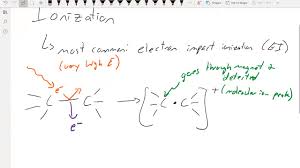 Ionization
↳ most common electron impact ionization (EI)
(very high E)
goes through magnet & detected
e⁻
C C → [C · C] + (molecular ion peak)
e⁻